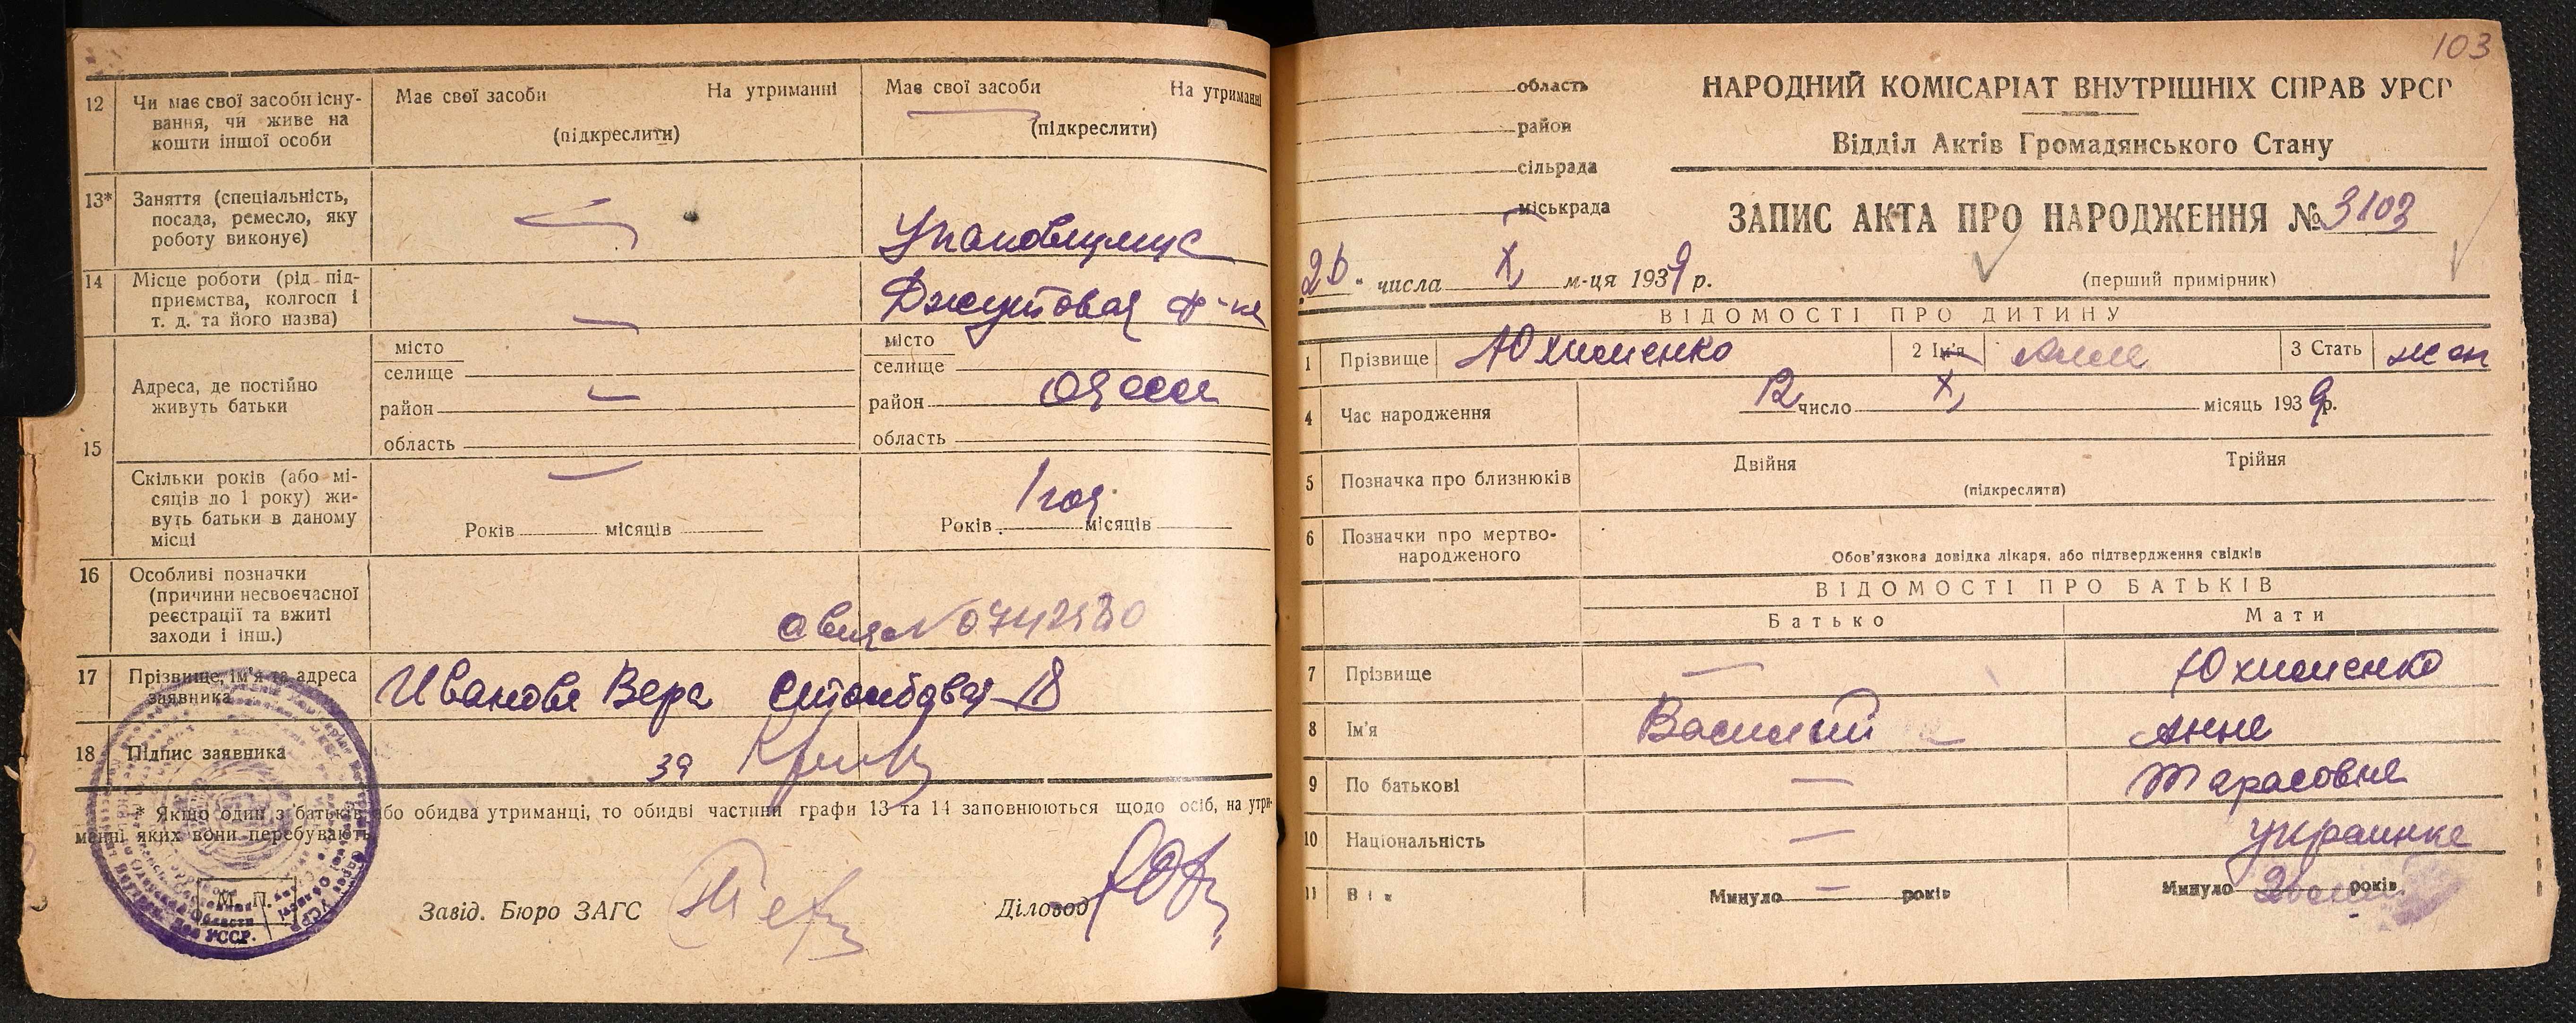 12
Чи має свої засоби існу-
вання, чи живе на
кошти іншої особи
Має свої засоби
На утриманні
(підкреслити)
Має свої засоби
На утриманні
(підкреслити)
13*
Заняття (спеціальність,
посада, ремесло, яку
роботу виконує)
14
Місце роботи (рід під-
приємства, колгосп і
т. д. та його назва)
Джутовая ф-ка
15
Адреса, де постійно
живуть батьки
місто
селище
район
область
місто
селище
район Одесса
область
Скільки років (або мі-
сяців до 1 року) жи-
вуть батьки в даному
місці
Років місяців
1 год.
Років місяців
16
Особливі позначки
(причини несвоєчасної
реєстрації та вжиті
заходи і інш.)
17
Прізвище, ім'я та адреса
заявника
Иванова Вера Столбовая 18
18
Підпис заявника
за
* Якщо один з батьків або обидва утриманці, то обидві частини графи 13 та 14 заповнюються щодо осіб, на утри-
менні яких вони перебувають
М. П.
УССР.
Завід. Бюро ЗАГС
Діловод
103
область
район
сільрада
міськрада
НАРОДНИЙ КОМІСАРІАТ ВНУТРІШНІХ СПРАВ УРСР
Відділ Актів Громадянського Стану
ЗАПИС АКТА ПРО НАРОДЖЕННЯ № 3103
26 " числа X м-ця 1939 р.
(перший примірник)
ВІДОМОСТІ ПРО ДИТИНУ
1 Прізвище Юхименко 2 Ім'я 3 Стать жен
4 Час народження 12 число X місяць 1939р.
5 Позначка про близнюків
Двійня Трійня
(підкреслити)
6 Позначки про мертво-
народженого
Обов'язкова довідка лікаря, або підтвердження свідків
ВІДОМОСТІ ПРО БАТЬКІВ
Батько Мати
7 Прізвище — Юхименко
8 Ім'я Василий Анна
9 По батькові — Тарасовна
10 Національність — украинка
11 Вік Минуло — років Минуло років